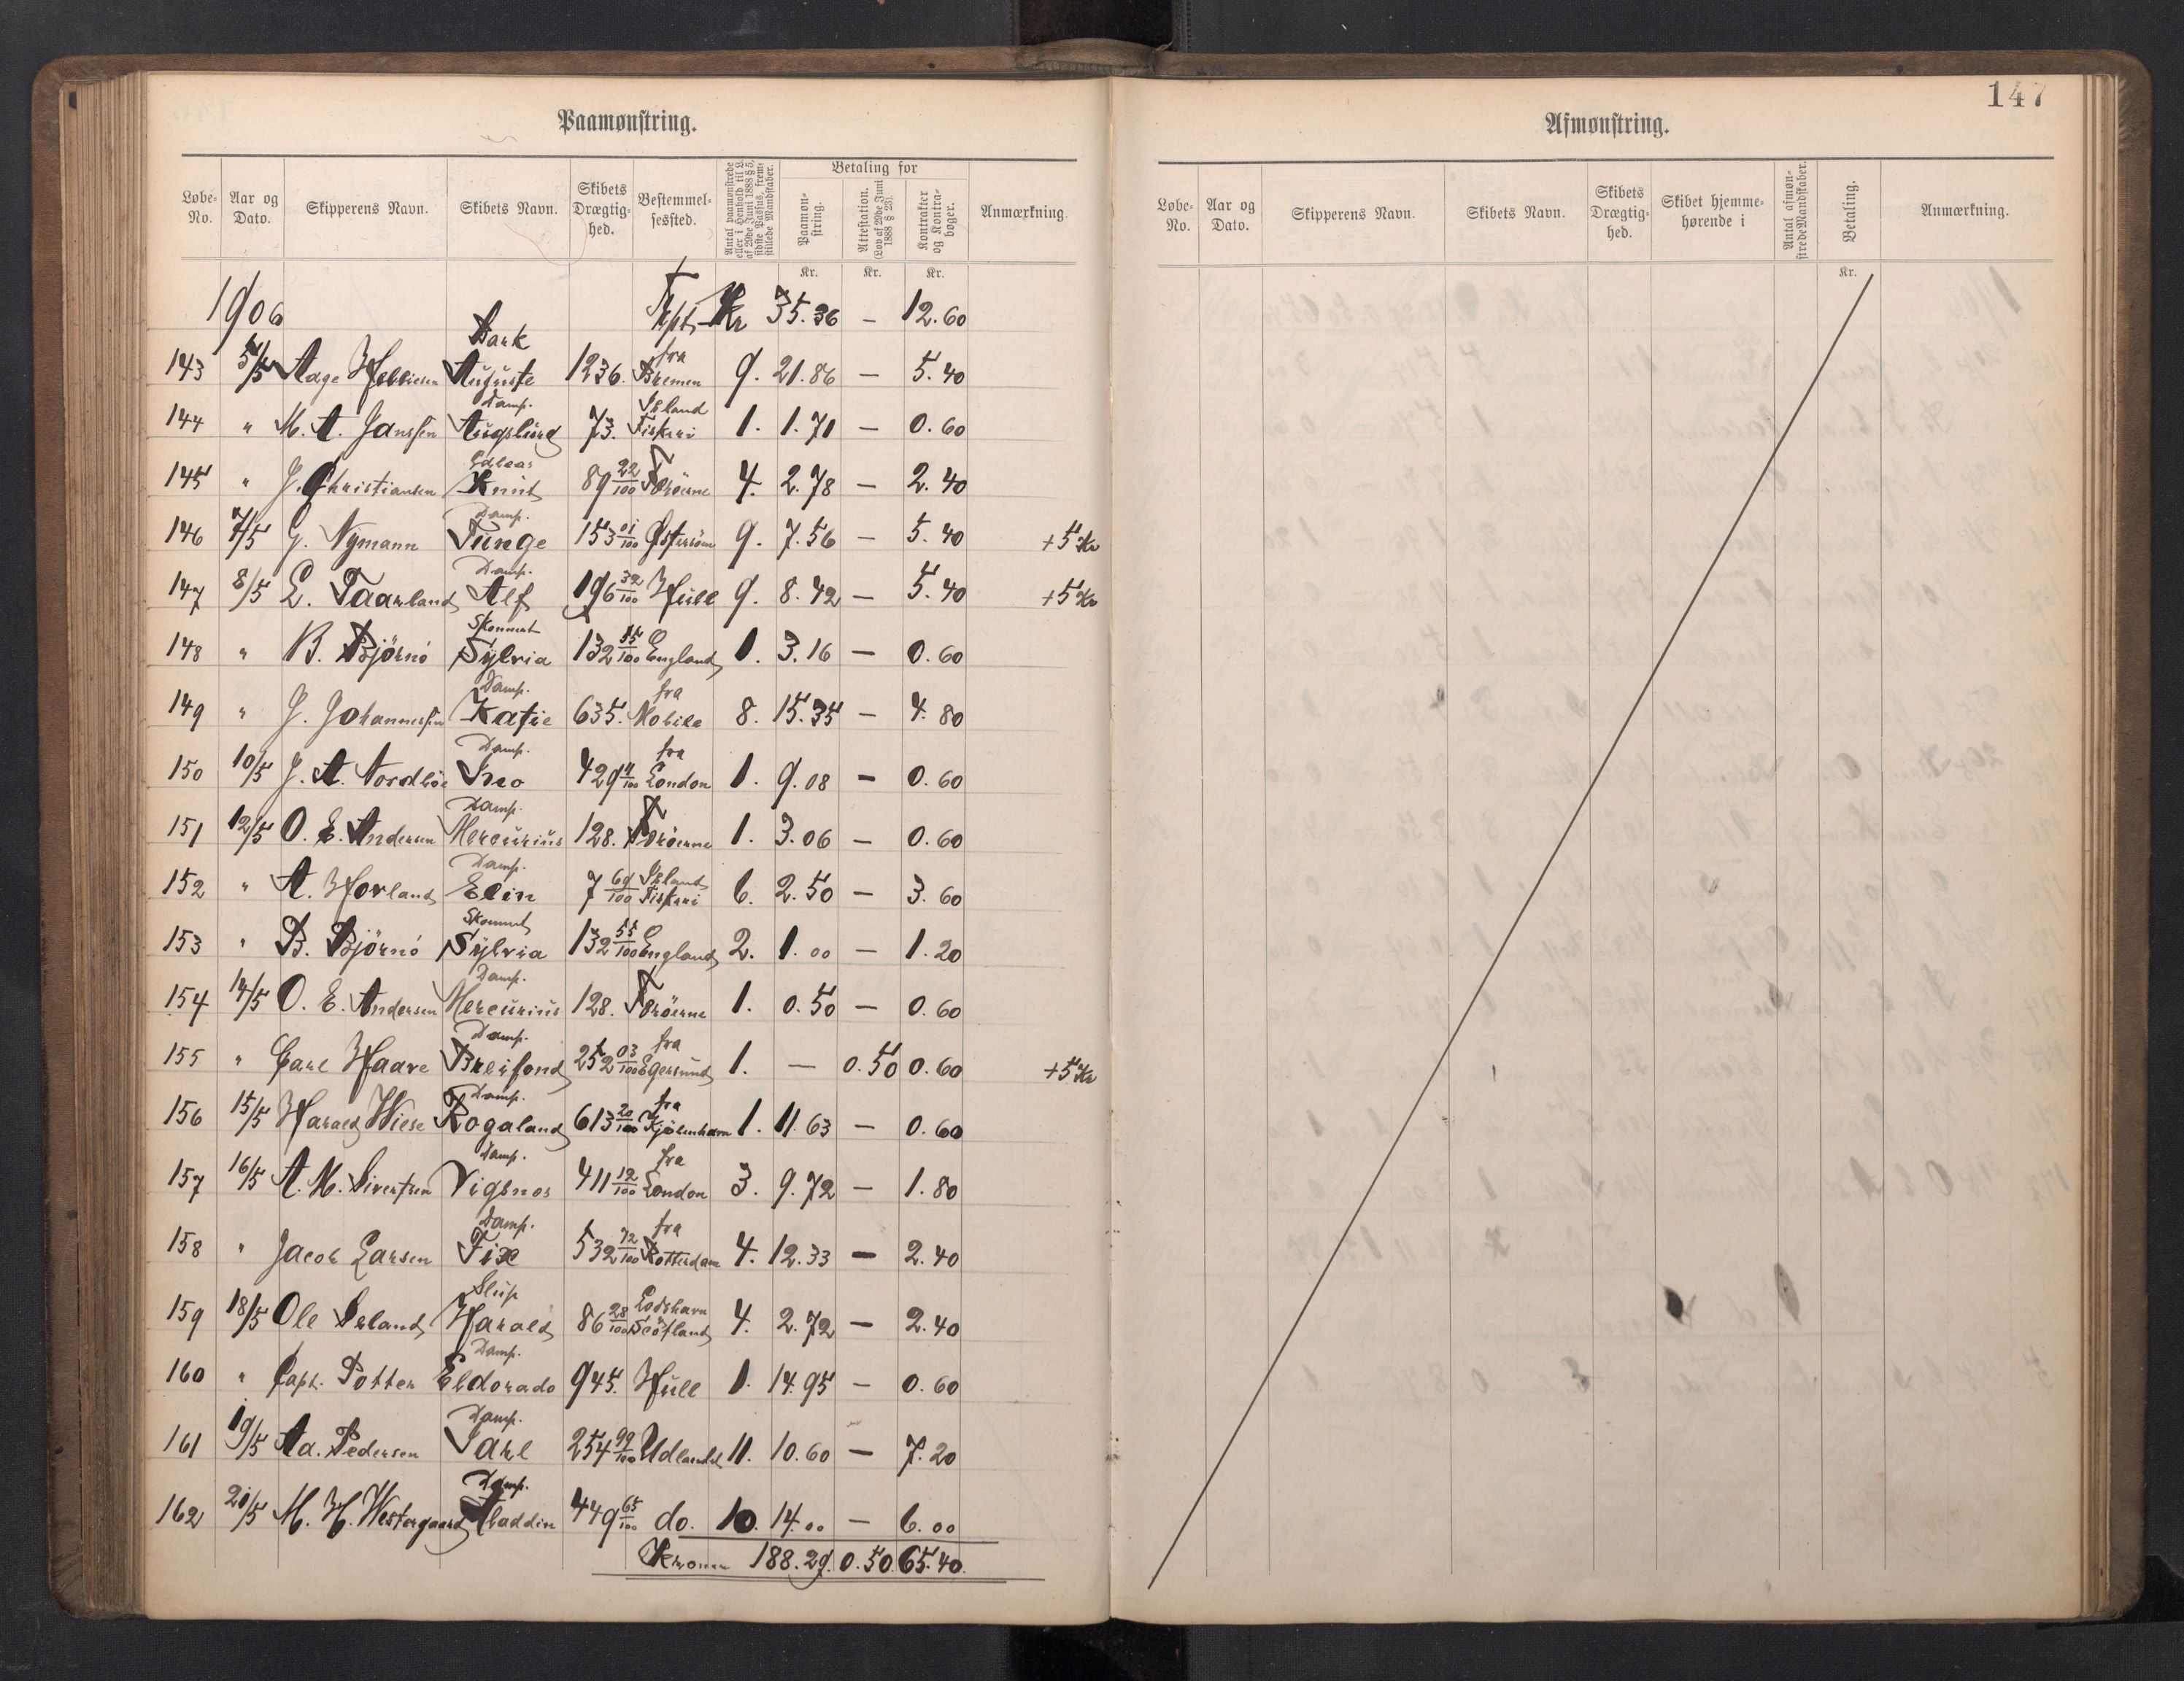 Paamønstring.
Løbe-No. Aar og Dato. Skipperens Navn. Skibets Navn. Skibets Drægtighed. Bestemmelsessted. Antal paamønstrede eller i Henhold til L. af 29de Juni 1888 § 5, sidste Passus, fremstillede Mandskaber. Betaling for Paamønstring. Attestation. (Lov af 29de Juni 1888 § 23). Kontrakter og Kontrabøger. Anmærkning.
Kr. Kr. Kr.
1906 Trpt. Kr 35.36 — 12.60
Bark fra
143 5/5 Aage Auguste 1236. Bremen 9. 21.86 — 5.40
Damp. Island
144 " M. A. Janssen 73. Fiskeri 1. 1.71 — 0.60
145 " J. Christiansen Knut 89 22/100 Færöerne 4. 2.78 — 2.40
Damp.
146 7/5 G. Nymann Funge 153 01/100 Østersöen 9. 7.56 — 5.40 +5 Kr
Damp.
147 8/5 L. Taarland Alf 196 32/100 Hull 9. 8.42 — 5.40 +5 Kr
Skonnert
148 " B. Björnö Sylvia 132 55/100 England 1. 3.16 — 0.60
Damp. fra
149 " J. Johannessen Katie 635. Mobile 8. 15.35 — 4.80
Damp. fra
150 10/5 J. A. Nordböe Ino 429 11/100 London 1. 9.08 — 0.60
Damp.
151 12/5 O. E. Andersen Mercurius 128. Færöerne 1. 3.06 — 0.60
Damp. Island
152 " A. Hovland Elin 7 69/100 Fiskeri 6. 2.50 — 3.60
Skonnert
153 " B. Björnö Sylvia 132 55/100 England 2. 1.00 — 1.20
Damp.
154 14/5 O. E. Andersen Mercurius 128. Færöerne 1. 0.50 — 0.60
Damp. fra
155 " Carl Haave Breifond 252 03/100 Egersund 1. — 0.50 0.60 +5 Kr
Damp. fra
156 15/5 Harald Wiese Rogaland 613 20/100 Kjöbenhavn 1. 11.63 — 0.60
Damp. fra
157 16/5 A. M. Sivertsen Vigsnes 411 12/100 London 3. 9.72 — 1.80
Damp. fra
158 " Jacob Larsen Fix 532 72/100 Rotterdam 4. 12.33 — 2.40
Slup Lodshavn
159 18/5 Ole Seland Harald 86 28/100 Scotland 4. 2.72 — 2.40
Damp.
160 " Capt. Potter Eldorado 945. Hull 1. 14.95 — 0.60
Damp.
161 19/5 Ad. Pedersen Jarl 254 99/100 Udlandet 11. 10.60 — 7.20
Damp.
162 21/5 M. H. Westergaard Aladdin 449 65/100 do. 10. 14.00 — 6.00
Kroner 188.29. 0.50. 65.40.
147
Afmønstring.
Løbe-No. Aar og Dato. Skipperens Navn. Skibets Navn. Skibets Drægtighed. Skibet hjemmehørende i Antal afmønstrede Mandskaber. Betaling. Anmærkning.
Kr.